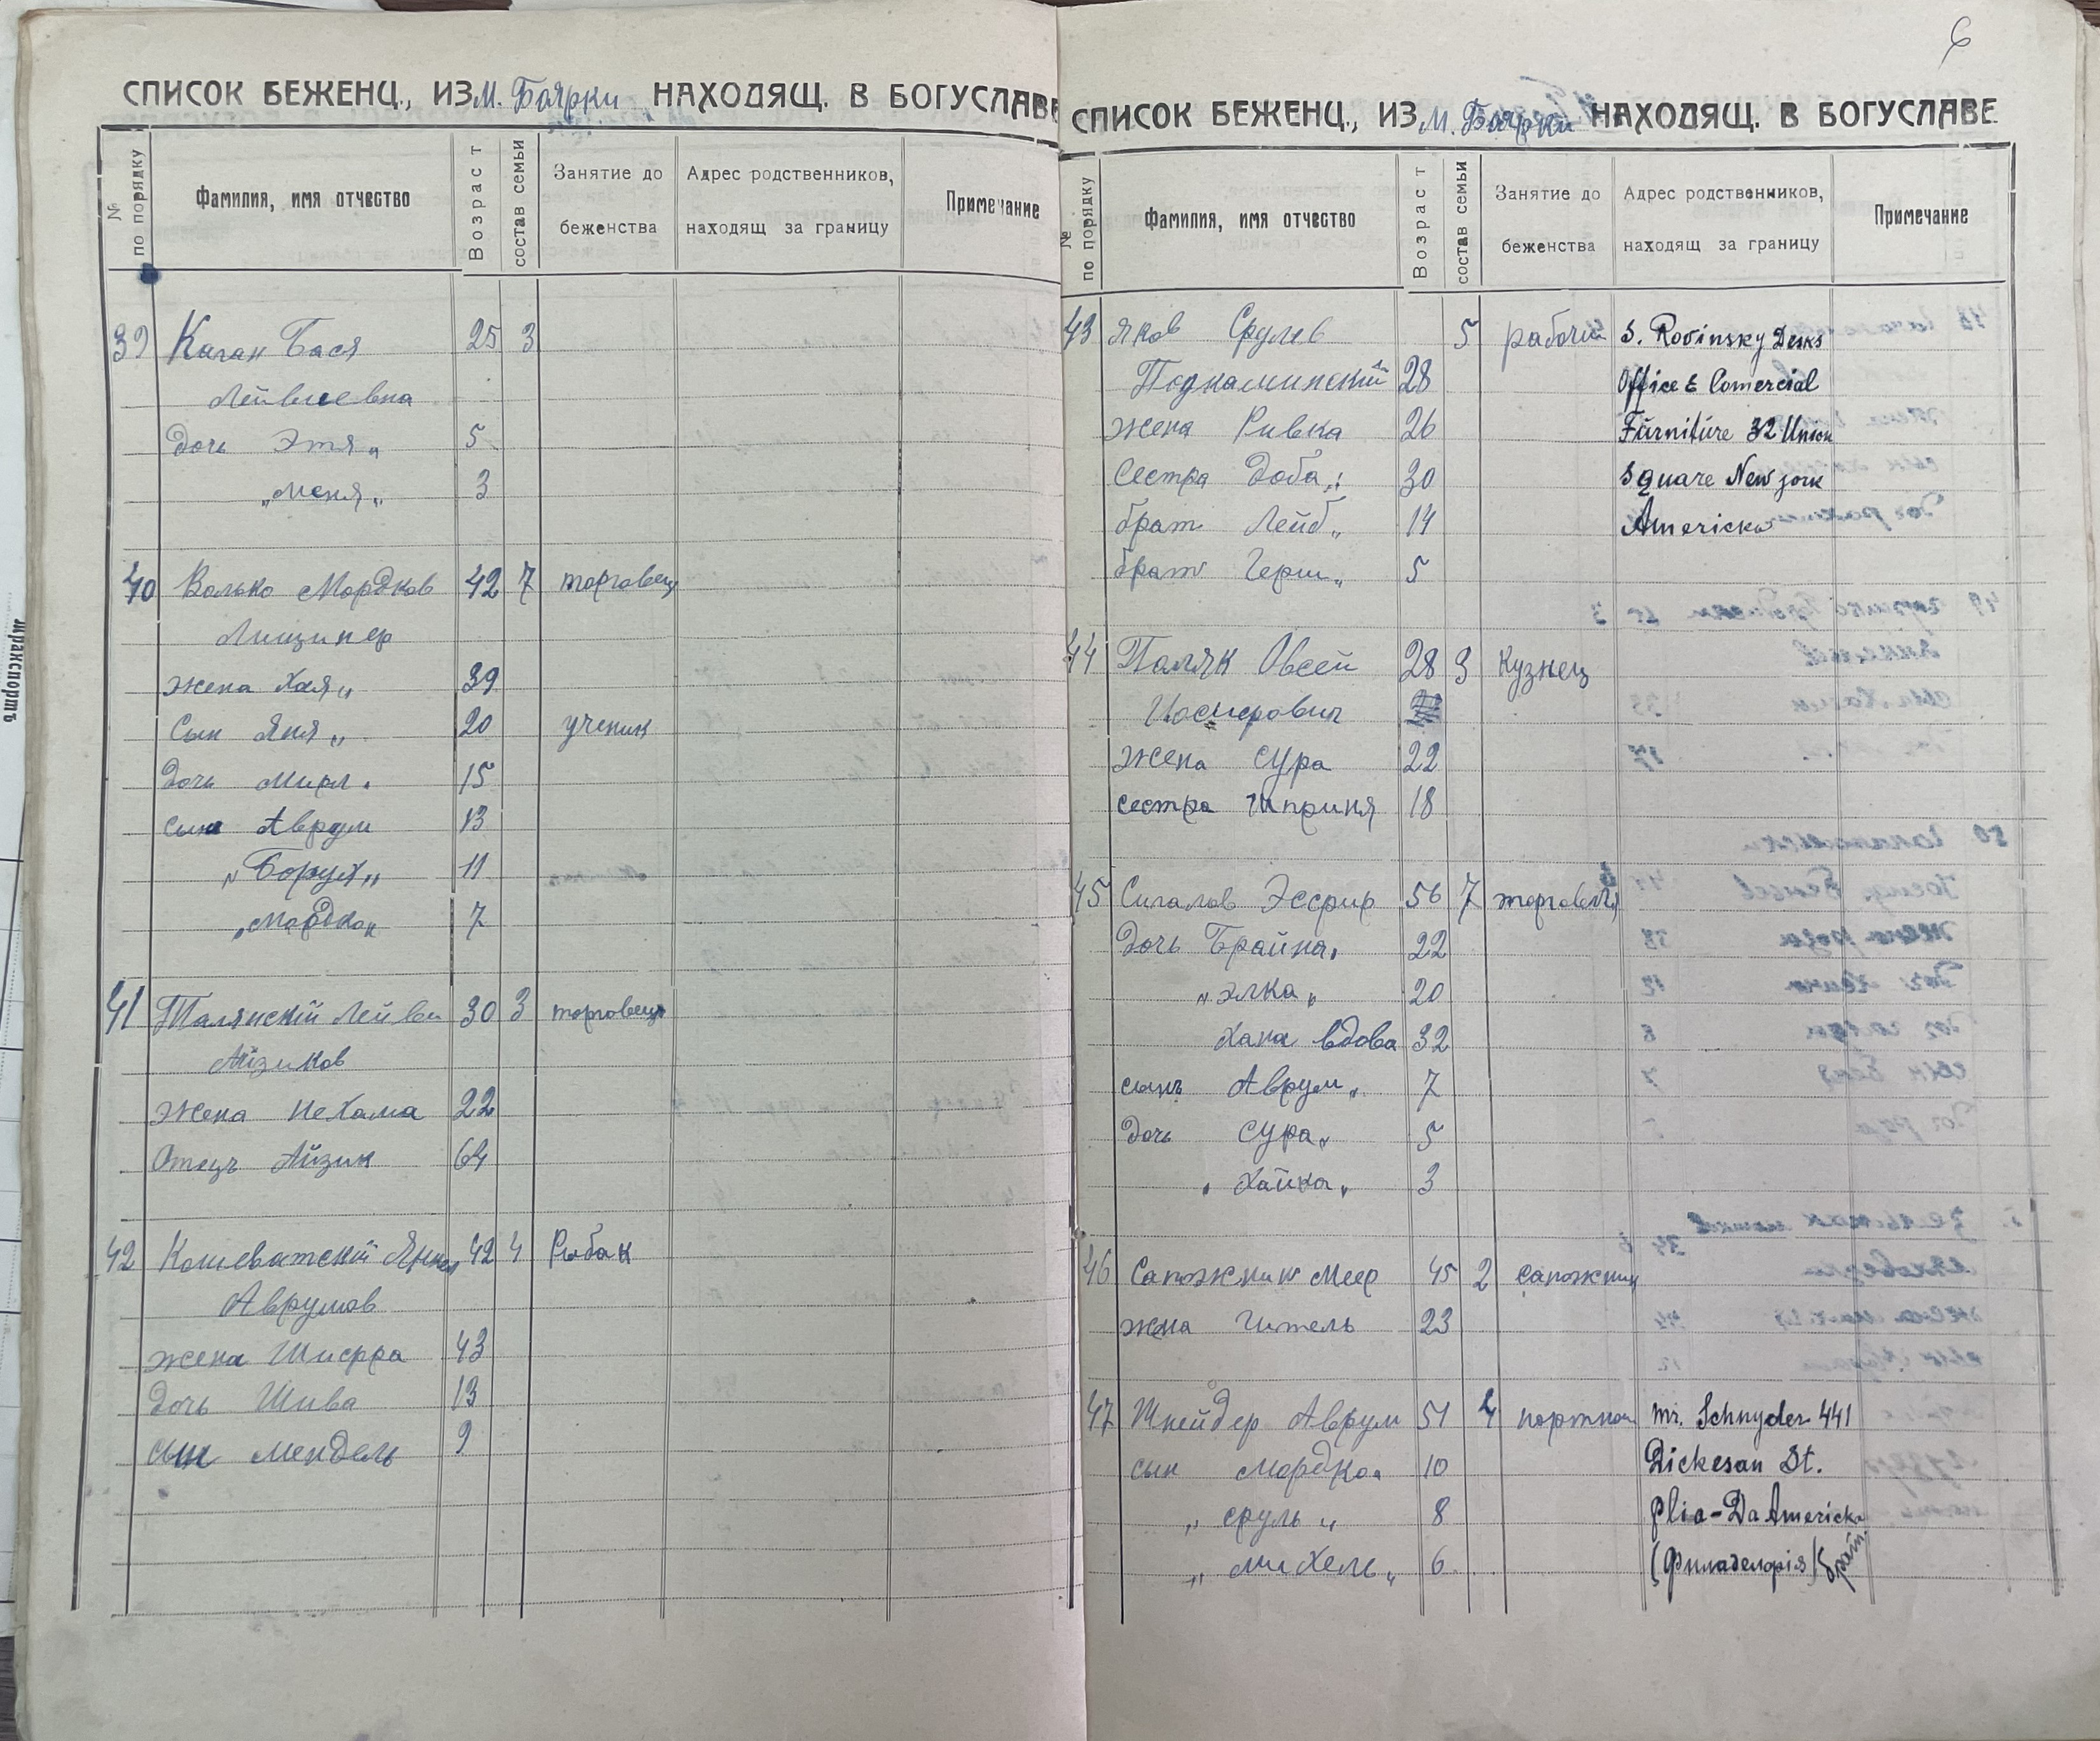 6
СПИСОК БЕЖЕНЦ., ИЗ м. Боярки НАХОДЯЩ. В БОГУСЛАВЕ
№ по порядку Фамилия, имя отчество Возраст состав семьи Занятие до беженства Адрес родственников, находящ за границу Примечание
39 Каган Бася 25 3
Лейвиевна
дочь Этя „ 5
„ Меня „ 3
40 Волько Мордков 42 7 торговец
Лищинер
жена Хая „ 39
Сын Яня „ 20 ученик
дочь Мирл „ 15
сын Аврум 13
„ Борух „ 11
„ Мордко „ 7
41 Талянскій Лейви 30 3 торговец
Айзиков
Жена Нехама 22
Отецъ Айзик 64
42 Кошеватскій Янкел 42 4 Рыбак
Аврумов
жена Шифра 43
дочь Шива 13
сын Мендель 9
СПИСОК БЕЖЕНЦ., ИЗ м. Боярки НАХОДЯЩ. В БОГУСЛАВЕ
№ по порядку Фамилия, имя отчество Возраст состав семьи Занятие до беженства Адрес родственников, находящ за границу Примечание
43 Яков Срулев 5 рабочий S. Rovinsky Desks
Поднаминский 28 Office & Comercial
жена Ривка 26 Furniture 32 Union
Сестра Доба „ 30 Square New jork
брат Лейб „ 14 Americka
брат Герш „ 5
44 Паляк Овсей 28 3 Кузнец
Иосифович
жена Сура 22
сестра Шприня 18
45 Сигалов Эсфир 56 7 торговля
дочь Брайна „ 22
„ Элка „ 20
Хана вдова 32
сынъ Аврум „ 7
дочь Сура „ 5
„ Хайка „ 3
46 Сапожник Меер 45 2 сапожник
жена Гитель 23
47 Шнейдер Аврум 51 4 портной Mr. Schnyder 441
сын Мордко „ 10 Dickesan St.
„ Сруль „ 8 Plia-Da Americka
„ Михель „ 6 (Филаделфія) брат
Транспортъ